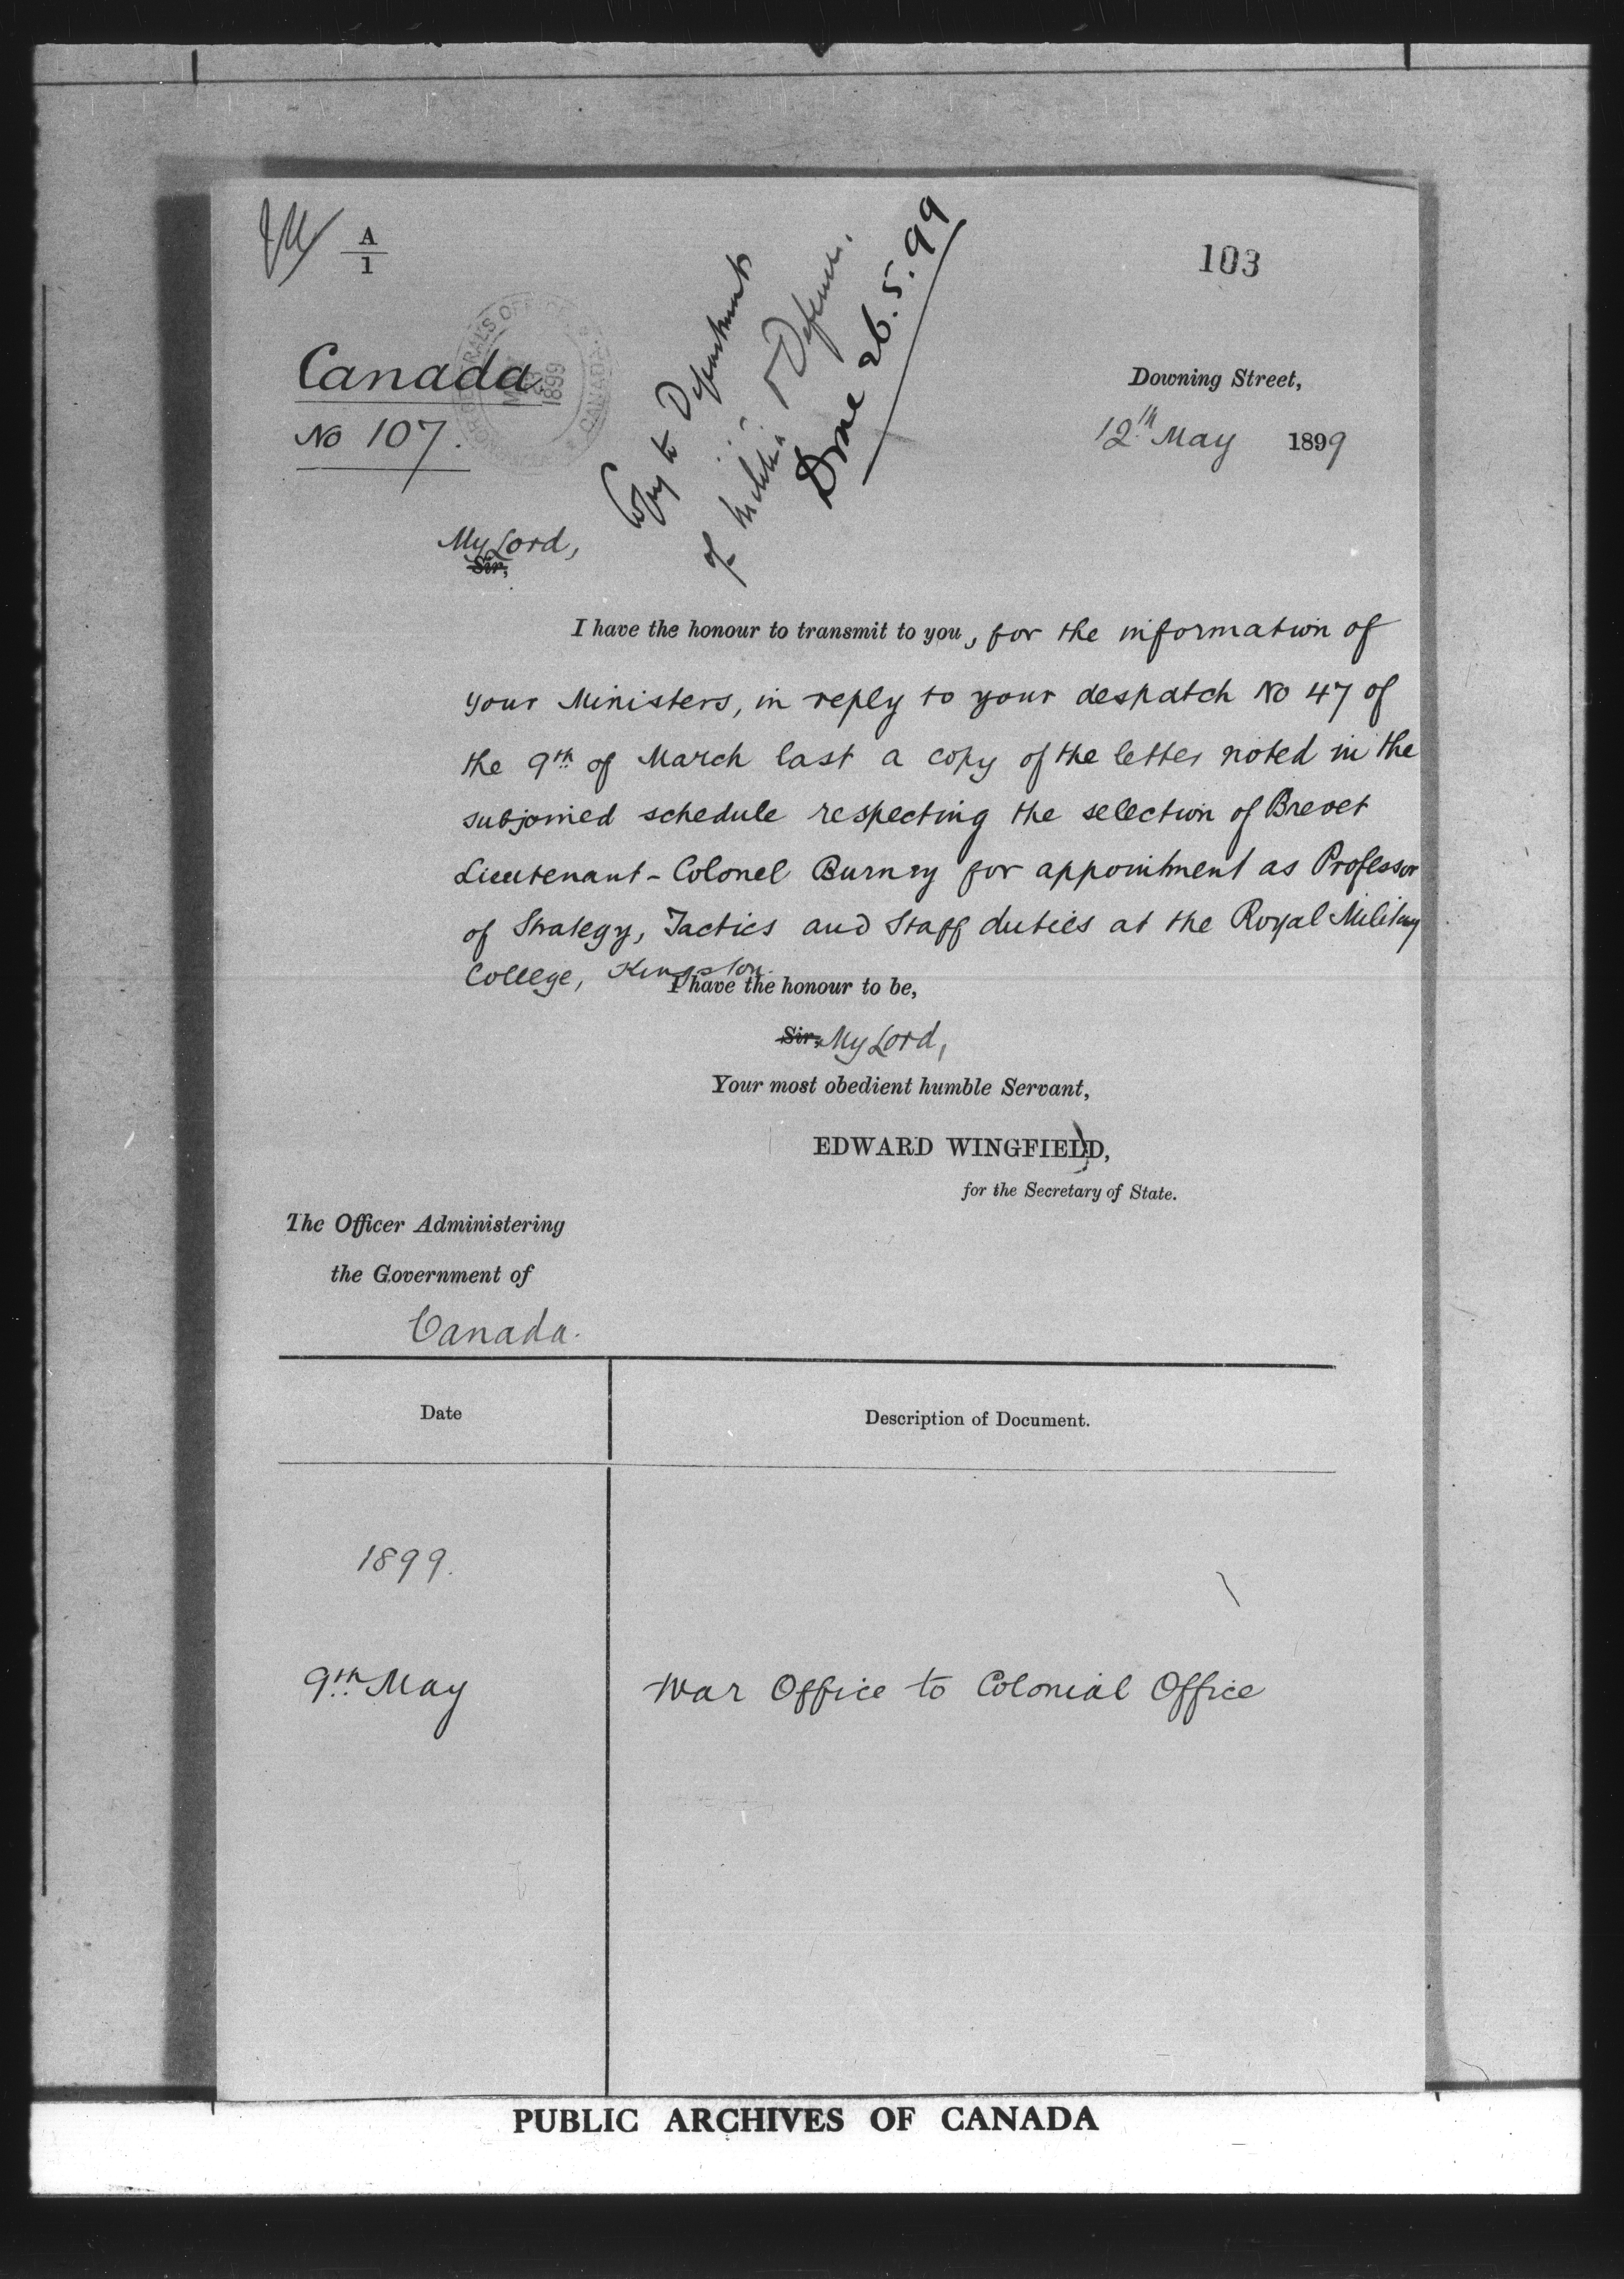 A
1
103
Canada
No 107.
Copy to Department
of Militia & Defence.
Done 26.5.99
Downing Street,
12th May 1899
My Lord,
Sir,
I have the honour to transmit to you, for the information of
your Ministers, in reply to your despatch No 47 of
the 9th of March last a copy of the letter noted in the
subjoined schedule respecting the selection of Brevet
Lieutenant-Colonel Burney for appointment as Professor
of Strategy, Tactics and Staff duties at the Royal Military
College, Kingston.
I have the honour to be,
Sir, My Lord,
Your most obedient humble Servant,
EDWARD WINGFIELD,
for the Secretary of State.
The Officer Administering
the Government of
Canada.
Date
Description of Document.
1899.
9th May
War Office to Colonial Office
PUBLIC ARCHIVES OF CANADA